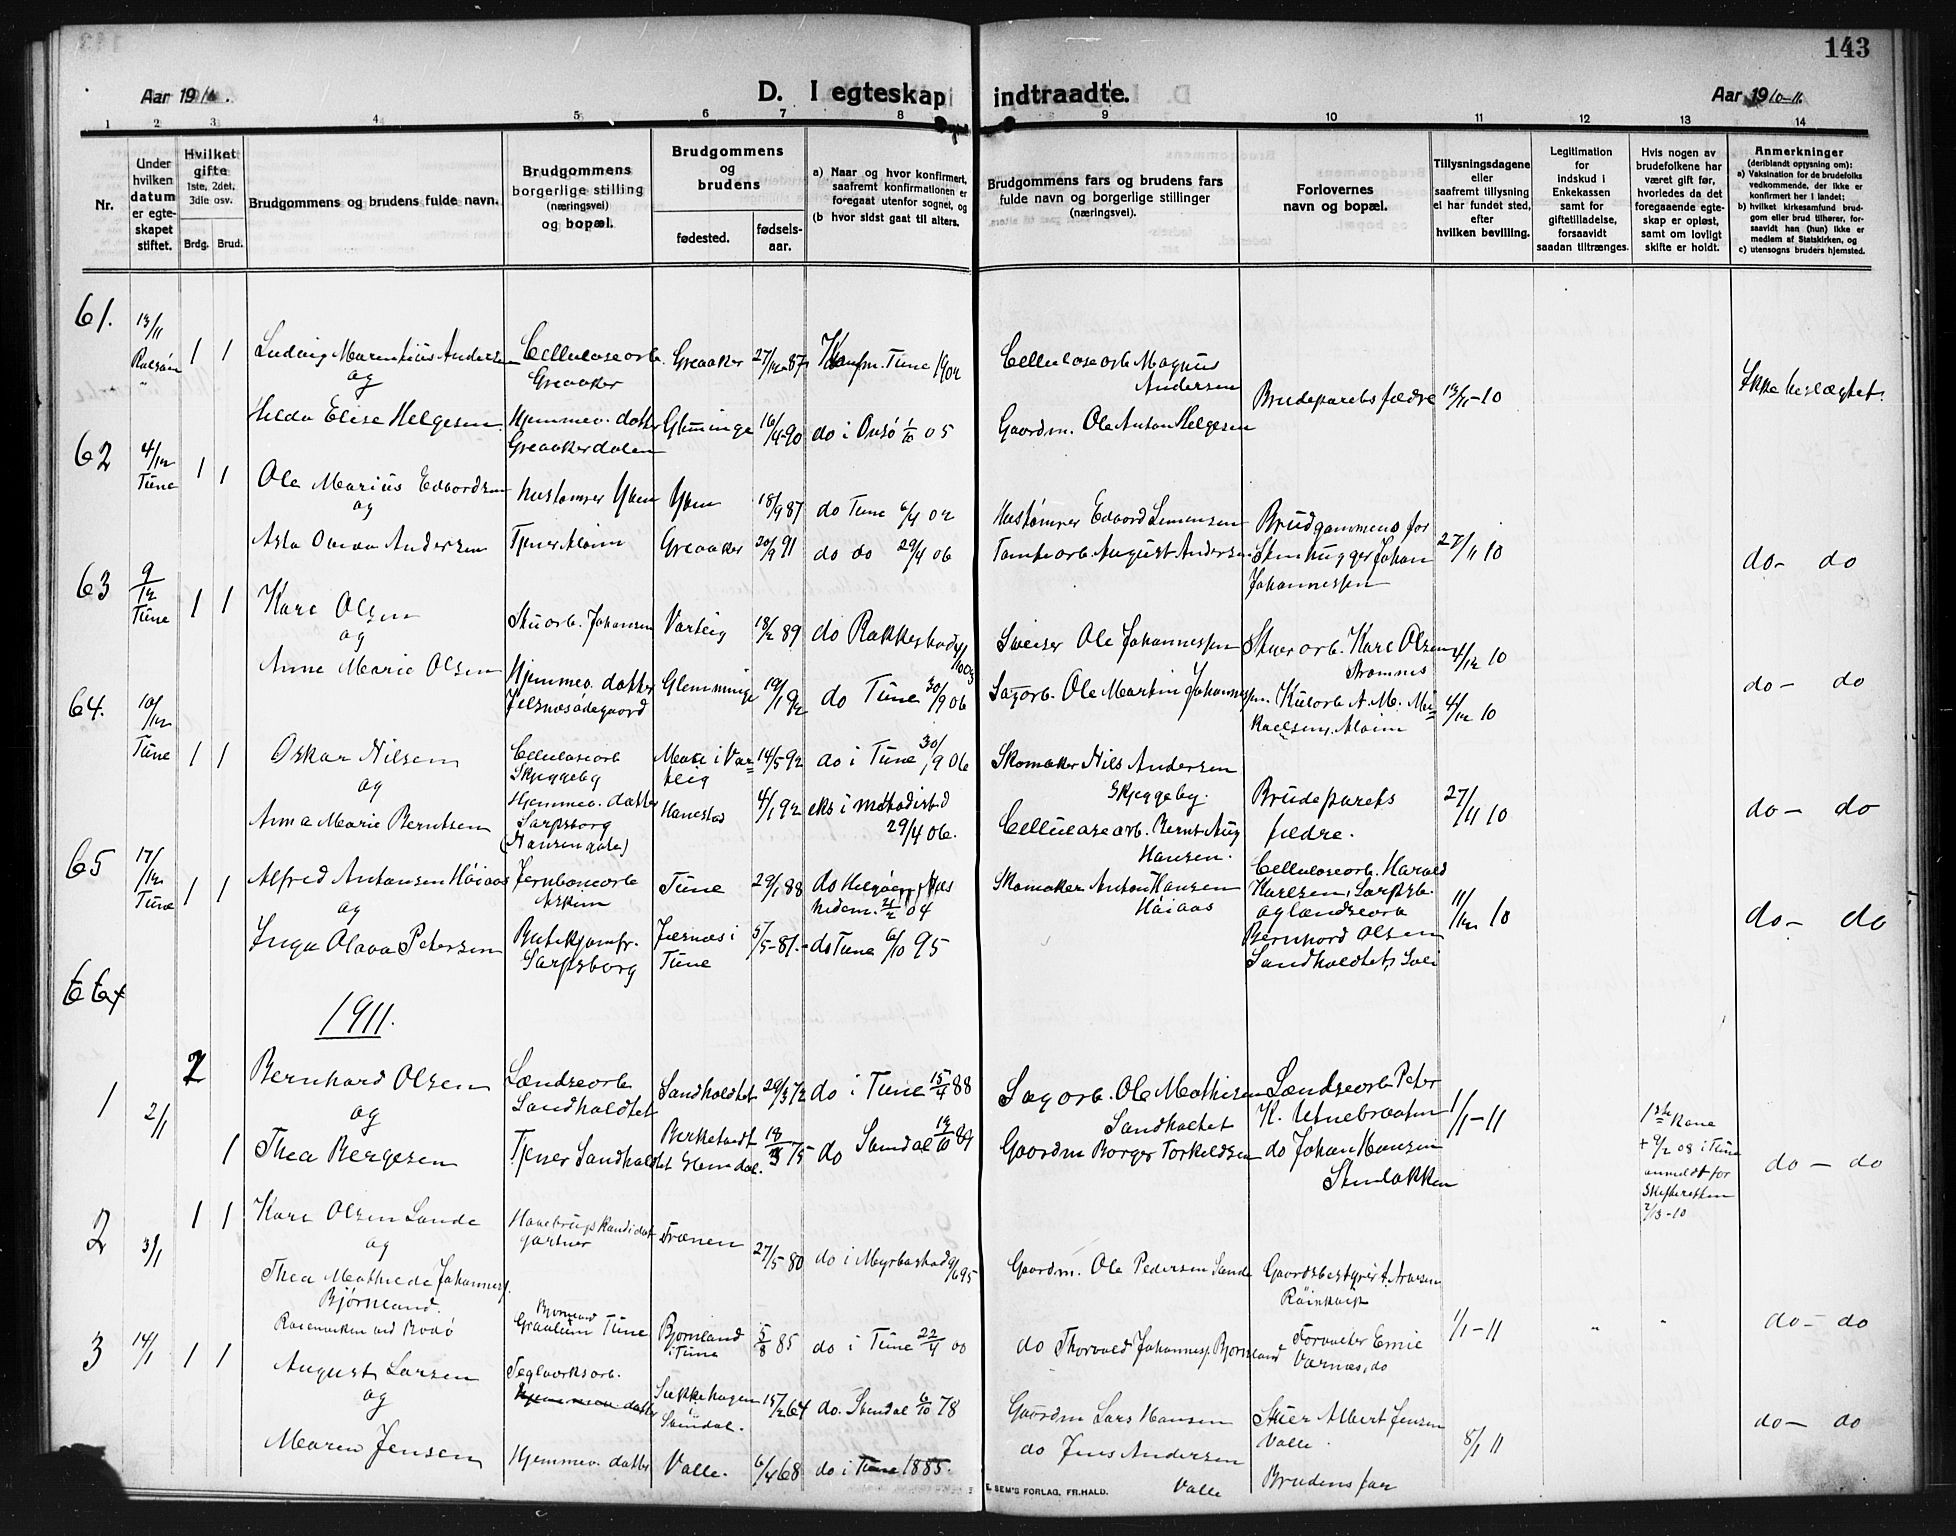 143
Aar 1910.
D. I egteskap indtraadte.
Aar 1910-11.
1 2 3 4 5 6 7 8 9 10 11 12 13 14
Nr.
Under hvilken datum er egteskapet stiftet.
Hvilket gifte 1ste, 2det, 3die osv.
Brdg. Brud.
Brudgommens og brudens fulde navn.
Brudgommens borgerlige stilling (næringsvei) og bopæl.
Brudgommens og brudens
fødested.
fødselsaar.
a) Naar og hvor konfirmert, saafremt konfirmationen er foregaat utenfor sognet, og
(b hvor sidst gaat til alters.
Brudgommens fars og brudens fars fulde navn og borgerlige stillinger (næringsvei).
Forlovernes navn og bopæl.
Tillysningsdagene eller saafremt tillysning ei har fundet sted, efter hvilken bevilling.
Legitimation for indskud i Enkekassen samt for giftetilladelse, forsaavidt saadan tiltrænges.
Hvis nogen av brudefolkene har været gift før, hvorledes da det foregaaende egteskap er opløst, samt om lovligt skifte er holdt.
Anmerkninger (deriblandt opysning om):
a) Vaksination for de brudefolks vedkommende, der ikke er konfirmert her i landet;
b) hvilket kirkesamfund brudgom eller brud tilhører, forsaavidt han (hun) ikke er medlem af Statskirken, og
c) utensogns bruders hjemsted.
61. 13/11 1 1 Ludvig Marentius Andersen Cellulosearb. Greaaker Greaaker 27/12 87 Konfm. Tune 1902 Cellulosearb Magnus Andersen Brudeparets fædre 13/11-10 Ikke beslægtet.
og
Hilda Elise Helgesen Hjemmev. datter Greaakerdalen Glemminge 16/4-90 do i Onsø 1/10 05 Gaardm. Ole Anton Helgesen
62 4/12 Tune 1 1 Ole Marius Edvardsen hustømrer Yven Yven 18/9 87 do Tune 6/4 02 Hustømrer Edvard Simensen Brudgommens far
og
Asta Andersen Tjener Alvim Greaaker 20/9 91 do do 29/4 06 Tomtearb August Andersen Stenhugger Johan Johannessen 27/11 10 do- do
63 9/12 Tune 1 1 Karl Olsen Stuearb. Johansen Varteig 18/2 89 do Rakkestad Sveiser Ole Johannessen Stuerarb. Karl Olsen Strømnes 4/12 10
og
Anne Marie Olsen Hjemmev. datter Jelsnesødegaard Glemminge 19/1 92 do Tune 30/9 06 Sagarb. Ole Martin Johannessen Kularb A. M. Mikaelsen, Alvim 4/12 10 do- do
64. 10/12 Tune 1 1 Oskar Nilsen Cellulosearb Skjeggeby i Varteig 14/5 92 do i Tune 30/9 06 Skomaker Nils Andersen Skjeggeby.
og
Anna Marie Berntsen Hjemmev. datter Sarpsborg (Hansengate) Hanestad 4/1 92 eks i metodistkd 29/4 06. Cellulosearb. Bernt Aug Hansen. Brudeparets fædre. 27/11 10 do- do
65 17/12 Tune 1 1 Alfred Antonsen Høiaas Jernbanearb Askim Tune 29/1 88 do 04 Skomaker Anton Hansen Høiaas Cellulosearb. Harald Karlsen, Sarpsb.
og
Inga Olava Petersen Butikjomfr. Sarpsborg Jærnæs i Tune 5/5-81- do Tune 6/10 95 og lændsearb Bernhard Olsen Sandholdtet, Soli 11/12 10 do- do
1911.
1 2/1 2 Bernhard Olsen Lændsearb Sandholdtet Sandholdtet 29/3 72 do i Tune 15/4 88 Sagarb. Ole Mathisen Sandholtet Lændsearb Peter K. Utnebraaten 1/1-11
og
1 Thea Bergesen Tjener Sandholdtet Skendal. 18/3 75 do Skendal 89 Gaardm Borger Torkeldsen do Johan Hansen Stenløkken 1ste Kone + 9/2 08 i Tune anmeldt for Skifteretten 2/3-10 do- do
2 3/1 1 1 Karl Olsen Sande Havebrugskandidat gartner Frænen 27/5 80 do i Myrbostad 95 Gaardm. Ole Pedersen Sande Gaardsbestyrer A. Aralsen
og
Thea Mathilde Johannesp. Bjørnland. Bjørnland Graalum Tune Bjørnland i Tune 5/8 85 do i Tune 22/4 00 do Thorvald Johannesp. Bjørnland Forvalter Emil Varnæs, do 1/1-11 " " do- do
3 14/1 1 1 August Larsen Teglverksarb. Sukkehagen i Skendal. 15/2 64 do. Skendal 6/10 78 Gaardm Lars Hansen Stuer Albert Jensen Valle.
og
Maren Jensen Hjemmev. datter Valle. 6/4 68 do i Tune 1885. do Jens Andersen Valle Brudens far 8/1 11 do- do
E. SEM'S FORLAG, FR.HALD.